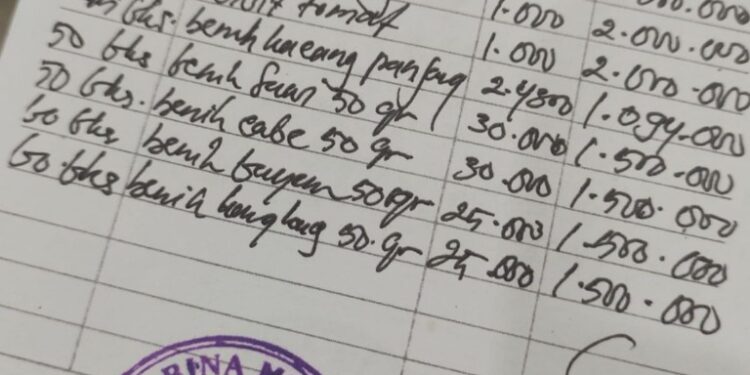 00.000
1.000 2.000.000
tomat 1.000 2.000.000
bks. benih kacang panjang 1.094.000
50 bks benih Sawi 50 gr 30.000 1.500.000
50 bks. benih cabe 50 gr 30.000 1.500.000
60 bks benih bayam 50 gr 25.000 1.500.000
60 bks benih kangkung 50. gr 25.000 1.500.000
BINA